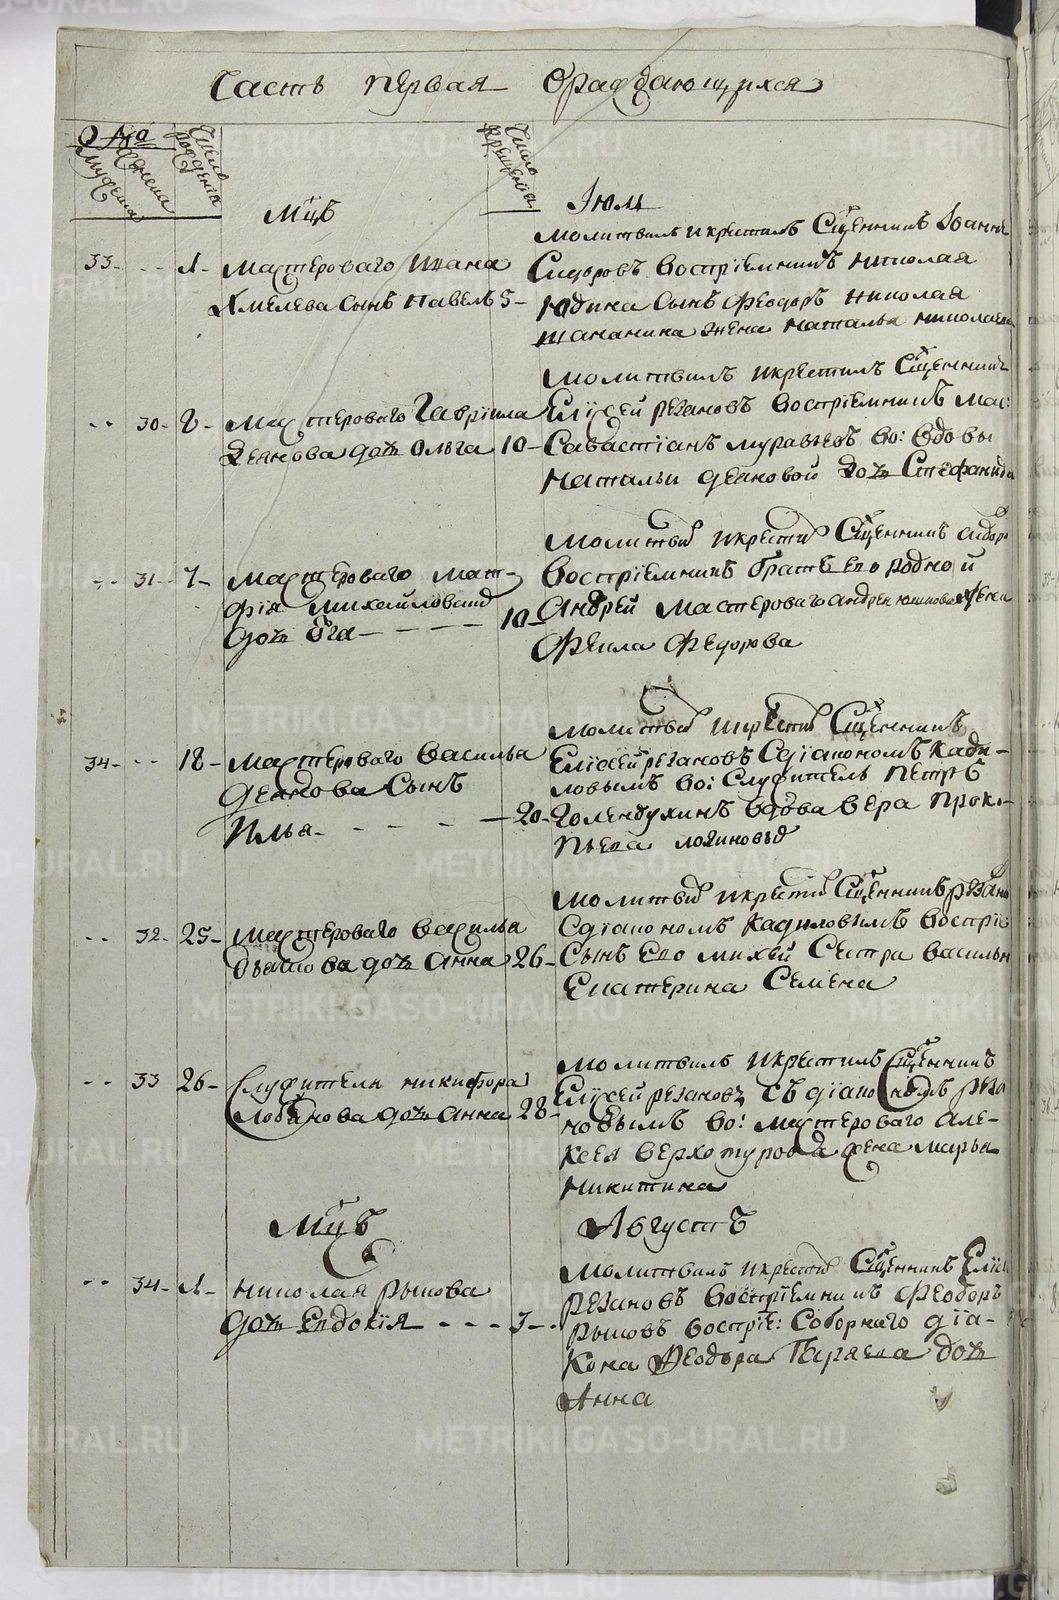 Часть первая ораждающихся
№
Мужеска
Женска
Число рождения
Число крещения
Мцъ Іюль
33 1 Мастероваго Ивана
Хмелева Сынъ Павелъ 5
Молитвилъ икрестилъ Сщенникъ Іоаннъ
Сидоровъ восприемникъ Николая
Юдина Сынъ Феодоръ Николая
жена Наталья Николаева
30 2 Мастероваго Гавріила
Деянова дочь Ольга 10
Молитвилъ икрестилъ Сщенникъ
Елісей Резановъ востріемникъ мас:
Савастіанъ муравьевъ во: вдовы
Натальи деяновой дочь Стефанида
31 7 Мастероваго Мат-
фія Михайловыхъ
дочь 10
Молитвилъ икрестилъ Сщенникъ Сидоровъ
востріемникъ братъ Его родной
Андрей Мастероваго Андрея жена
Фекла Федорова
34 18 Мастероваго Василья
Деянова Сынъ
Илья 20
Молитвилъ икрестилъ Сщенникъ
Елісей резановъ Сдіакономъ Кади-
ловымъ во: Служитель Петръ
Голендухинъ вдова Вера Прок-
пьева логиновыхъ
32 25 Мастероваго Василья
дочь Анна 26
Молитвилъ икрестилъ Сщенникъ резановъ
Сдіакономъ Кадиловымъ востріе:
Сынъ Его михей Сестра васильи
Екатерина Семена
33 26 Служителя никифора
Лобанова дочь Анна 28
Молитвилъ икрестилъ Сщенникъ
Елісей резановъ Съ діакономъ
во: мастероваго Але-
ксея Верхотурова жена марья
Никитина
Мцъ Августъ
34 1 Николая Рыкова
дочь Евдокія 3
Молитвилъ икрестилъ Сщенникъ Еліс
Резановъ востріемникъ Феодоръ
Рыковъ востріе: Соборнаго діа-
кона Феодора дочь
Анна
METRIKI.GASO-URAL.RU